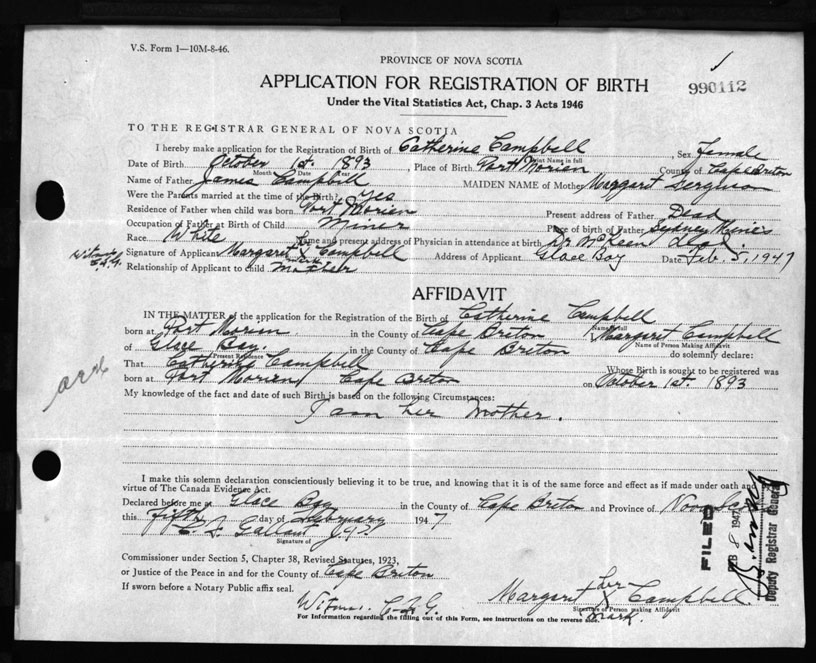 V.S. Form 1—10M-8-46.
1
PROVINCE OF NOVA SCOTIA
990112
APPLICATION FOR REGISTRATION OF BIRTH
Under the Vital Statistics Act, Chap. 3 Acts 1946
TO THE REGISTRAR GENERAL OF NOVA SCOTIA
I hereby make application for the Registration of Birth of Catherine Campbell Sex Female
Print Name in full
Date of Birth October 1st. 1893 Place of Birth Port Morien County of Cape Briton
Month Date Year
Name of Father James Campbell MAIDEN NAME of Mother Margaret Ferguson
Were the Parents married at the time of the Birth? Yes
Residence of Father when child was born Port Morien Present address of Father Dead
Occupation of Father at Birth of Child Miner Place of birth of Father Sydney Mines
Race White Name and present address of Physician in attendance at birth Dr McKean dead.
Witness C.J.G. Signature of Applicant Margaret her X mark Campbell Address of Applicant Glace Bay Date Feb. 5, 1947
Relationship of Applicant to child Mother
AFFIDAVIT
IN THE MATTER of the application for the Registration of the Birth of Catherine Campbell
Name in full
born at Port Morien in the County of Cape Briton I, Margaret Campbell
Name of Person Making Affidavit
of Glace Bay. in the County of Cape Briton do solemnly declare:
Present Residence
That Catherine Campbell Whose Birth is sought to be registered was
born at Port Morien Cape Briton on October 1st. 1893
My knowledge of the fact and date of such Birth is based on the following Circumstances:
I am her Mother.
I make this solemn declaration conscientiously believing it to be true, and knowing that it is of the same force and effect as if made under oath and
virtue of The Canada Evidence Act.
Declared before me at Glace Bay in the County of Cape Briton and Province of Nova Scotia
this fifth day of February 1947
C. J. Gallant J.P.
Signature of
Commissioner under Section 5, Chapter 38, Revised Statutes, 1923,
or Justice of the Peace in and for the County of Cape Briton
If sworn before a Notary Public affix seal.
Witness. C.J.G.
Margaret her X mark Campbell
Signature of Person making Affidavit
For Information regarding the filling out of this Form, see instructions on the reverse side.
FILED
FEB 8 1947
Deputy Registrar General